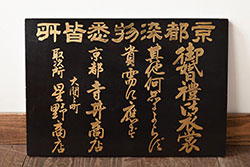 京都染物悉皆所
御禮衣裳
其他何品によらず
貴需に應ず
京都寺井商店
大間々町
取次所 星野商店